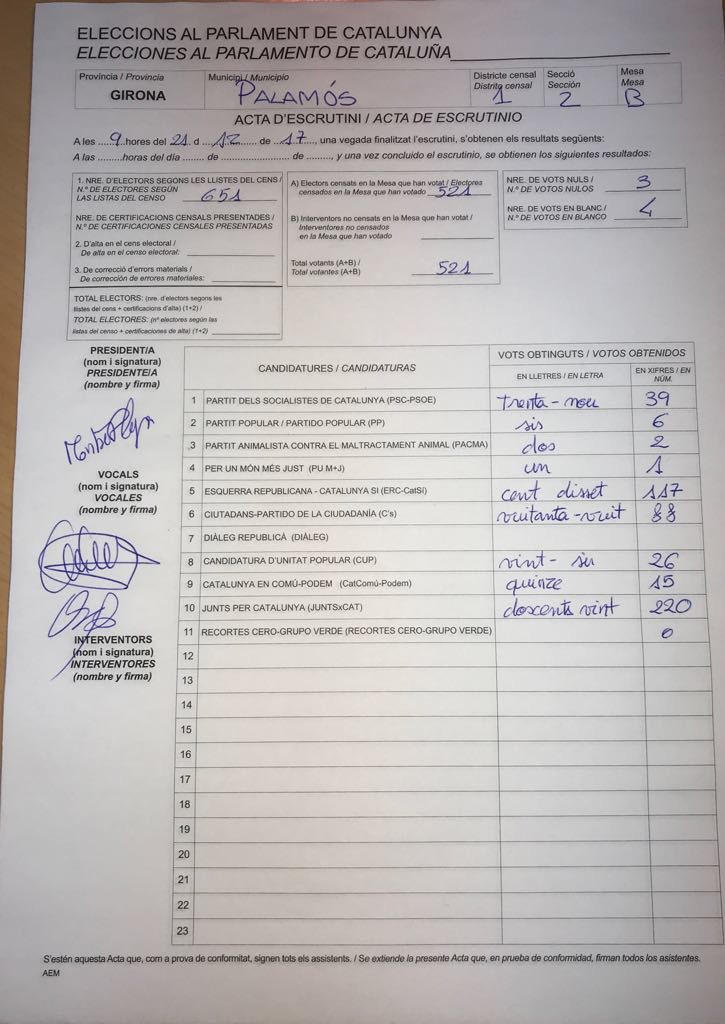 ELECCIONS AL PARLAMENT DE CATALUNYA
ELECCIONES AL PARLAMENTO DE CATALUÑA
Província / Provincia
GIRONA
Municipi / Municipio
PALAMÓS
Districte censal
Distrito censal
1
Secció
Sección
2
Mesa
Mesa
B
ACTA D'ESCRUTINI / ACTA DE ESCRUTINIO
A les ....9....hores del 21. d ....12...... de ...17..., una vegada finalitzat l'escrutini, s'obtenen els resultats següents:
A las .........horas del día ....... de ....................... de ........., y una vez concluido el escrutinio, se obtienen los siguientes resultados:
1. NRE. D'ELECTORS SEGONS LES LLISTES DEL CENS /
N.º DE ELECTORES SEGÚN
LAS LISTAS DEL CENSO 651
NRE. DE CERTIFICACIONS CENSALS PRESENTADES /
N.º DE CERTIFICACIONES CENSALES PRESENTADAS
2. D'alta en el cens electoral /
De alta en el censo electoral:
3. De correcció d'errors materials /
De corrección de errores materiales:
TOTAL ELECTORS: (nre. d'electors segons les
llistes del cens + certificacions d'alta) (1+2) /
TOTAL ELECTORES: (nº electores según las
listas del censo + certificaciones de alta) (1+2)
A) Electors censats en la Mesa que han votat / Electores
censados en la Mesa que han votado 521
B) Interventors no censats en la Mesa que han votat /
Interventores no censados
en la Mesa que han votado
Total votants (A+B) /
Total votantes (A+B) 521
NRE. DE VOTS NULS /
N.º DE VOTOS NULOS 3
NRE. DE VOTS EN BLANC /
N.º DE VOTOS EN BLANCO 4
PRESIDENT/A
(nom i signatura)
PRESIDENTE/A
(nombre y firma)
VOCALS
(nom i signatura)
VOCALES
(nombre y firma)
INTERVENTORS
(nom i signatura)
INTERVENTORES
(nombre y firma)
CANDIDATURES / CANDIDATURAS
VOTS OBTINGUTS / VOTOS OBTENIDOS
EN LLETRES / EN LETRA
EN XIFRES / EN NÚM.
1 PARTIT DELS SOCIALISTES DE CATALUNYA (PSC-PSOE) trenta-nou 39
2 PARTIT POPULAR / PARTIDO POPULAR (PP) sis 6
3 PARTIT ANIMALISTA CONTRA EL MALTRACTAMENT ANIMAL (PACMA) dos 2
4 PER UN MÓN MÉS JUST (PU M+J) un 1
5 ESQUERRA REPUBLICANA - CATALUNYA SI (ERC-CatSí) cent disset 117
6 CIUTADANS-PARTIDO DE LA CIUDADANÍA (C's) vuitanta-vuit 88
7 DIÀLEG REPUBLICÀ (DIÀLEG)
8 CANDIDATURA D'UNITAT POPULAR (CUP) vint-sis 26
9 CATALUNYA EN COMÚ-PODEM (CatComú-Podem) quinze 15
10 JUNTS PER CATALUNYA (JUNTSxCAT) doscents vint 220
11 RECORTES CERO-GRUPO VERDE (RECORTES CERO-GRUPO VERDE) 0
12
13
14
15
16
17
18
19
20
21
22
23
S'estén aquesta Acta que, com a prova de conformitat, signen tots els assistents. / Se extiende la presente Acta que, en prueba de conformidad, firman todos los asistentes.
AEM